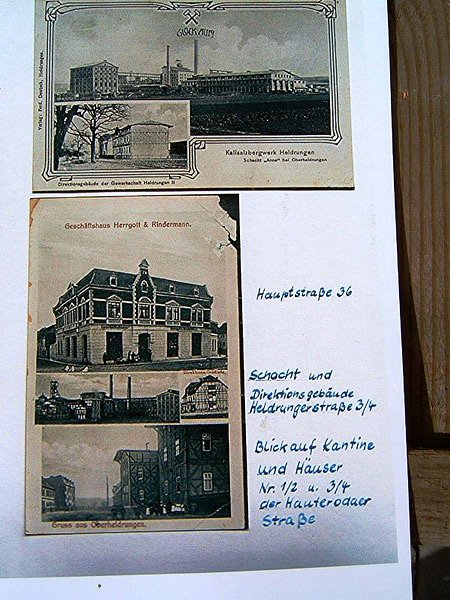 GLÜCK AUF!
Verlag: Ferd. Deutsch, Heldrungen.
Kalisalzbergwerk Heldrungen
Schacht „Anna" bei Oberheldrungen
Direktionsgebäude der Gewerkschaft Heldrungen II
Geschäftshaus Herrgott & Rindermann.
Gruss aus Oberheldrungen.
Hauptstraße 36
Schacht und
Direktionsgebäude
Heldrungerstraße 3/4
Blick auf Kantine
und Häuser
Nr. 1/2 u. 3/4
der Hauterodaer
Straße